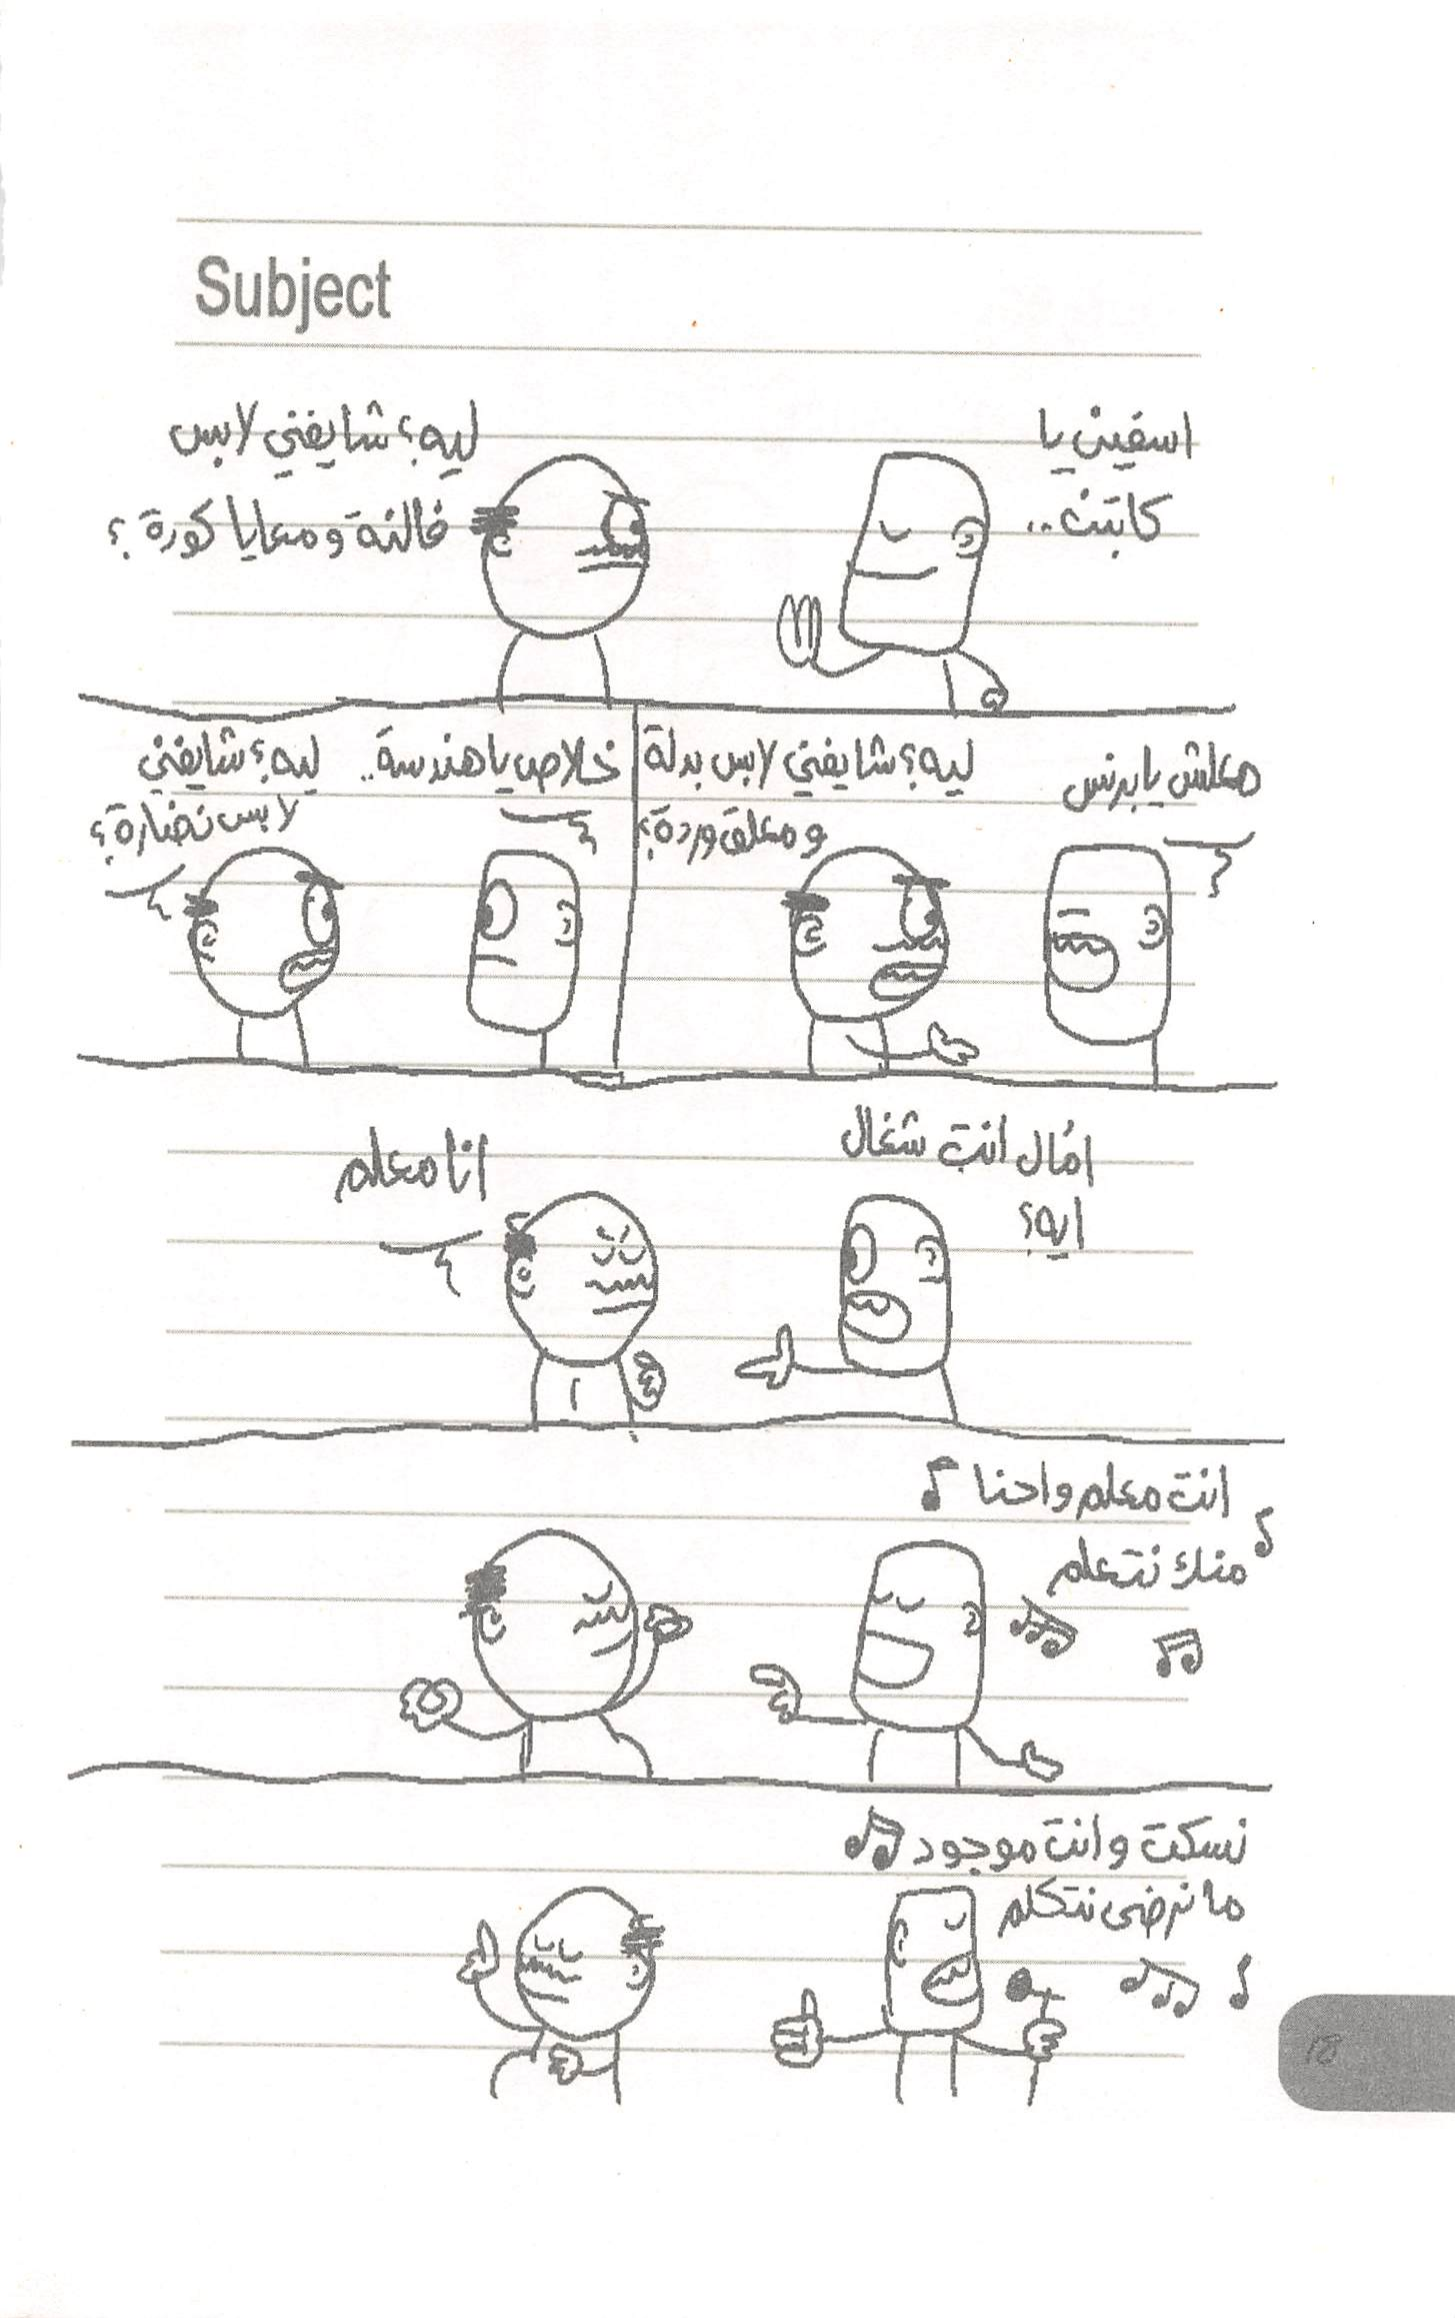 Subject
اسفين يا
كابتن..
ليه؟ شايفني لابس
فالنة ومعايا كورة؟
معلش يا برنس
ليه؟ شايفني لابس بدلة
ومعلق وردة؟
خلاص يا هندسة..
ليه؟ شايفني
لابس نضارة؟
امُال انت شغال
ايه؟
انا معلم
انت معلم واحنا
منك نتعلم
نسكت وانت موجود
ما نرضى نتكلم
18